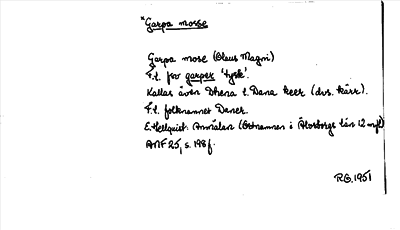 *Garpa mosse
Garpa mose (Olaus Magni)
F.t. fsv garper 'tysk'.
Kallas även Dhena l. Dana keer (dvs. kärr).
F.t. folknamnet Daner.
E. Hellquist: Anmälan (Ortnamnen i Älvsborgs län 12 m.fl)
ANF 25, s. 198 f.
RO. 1951